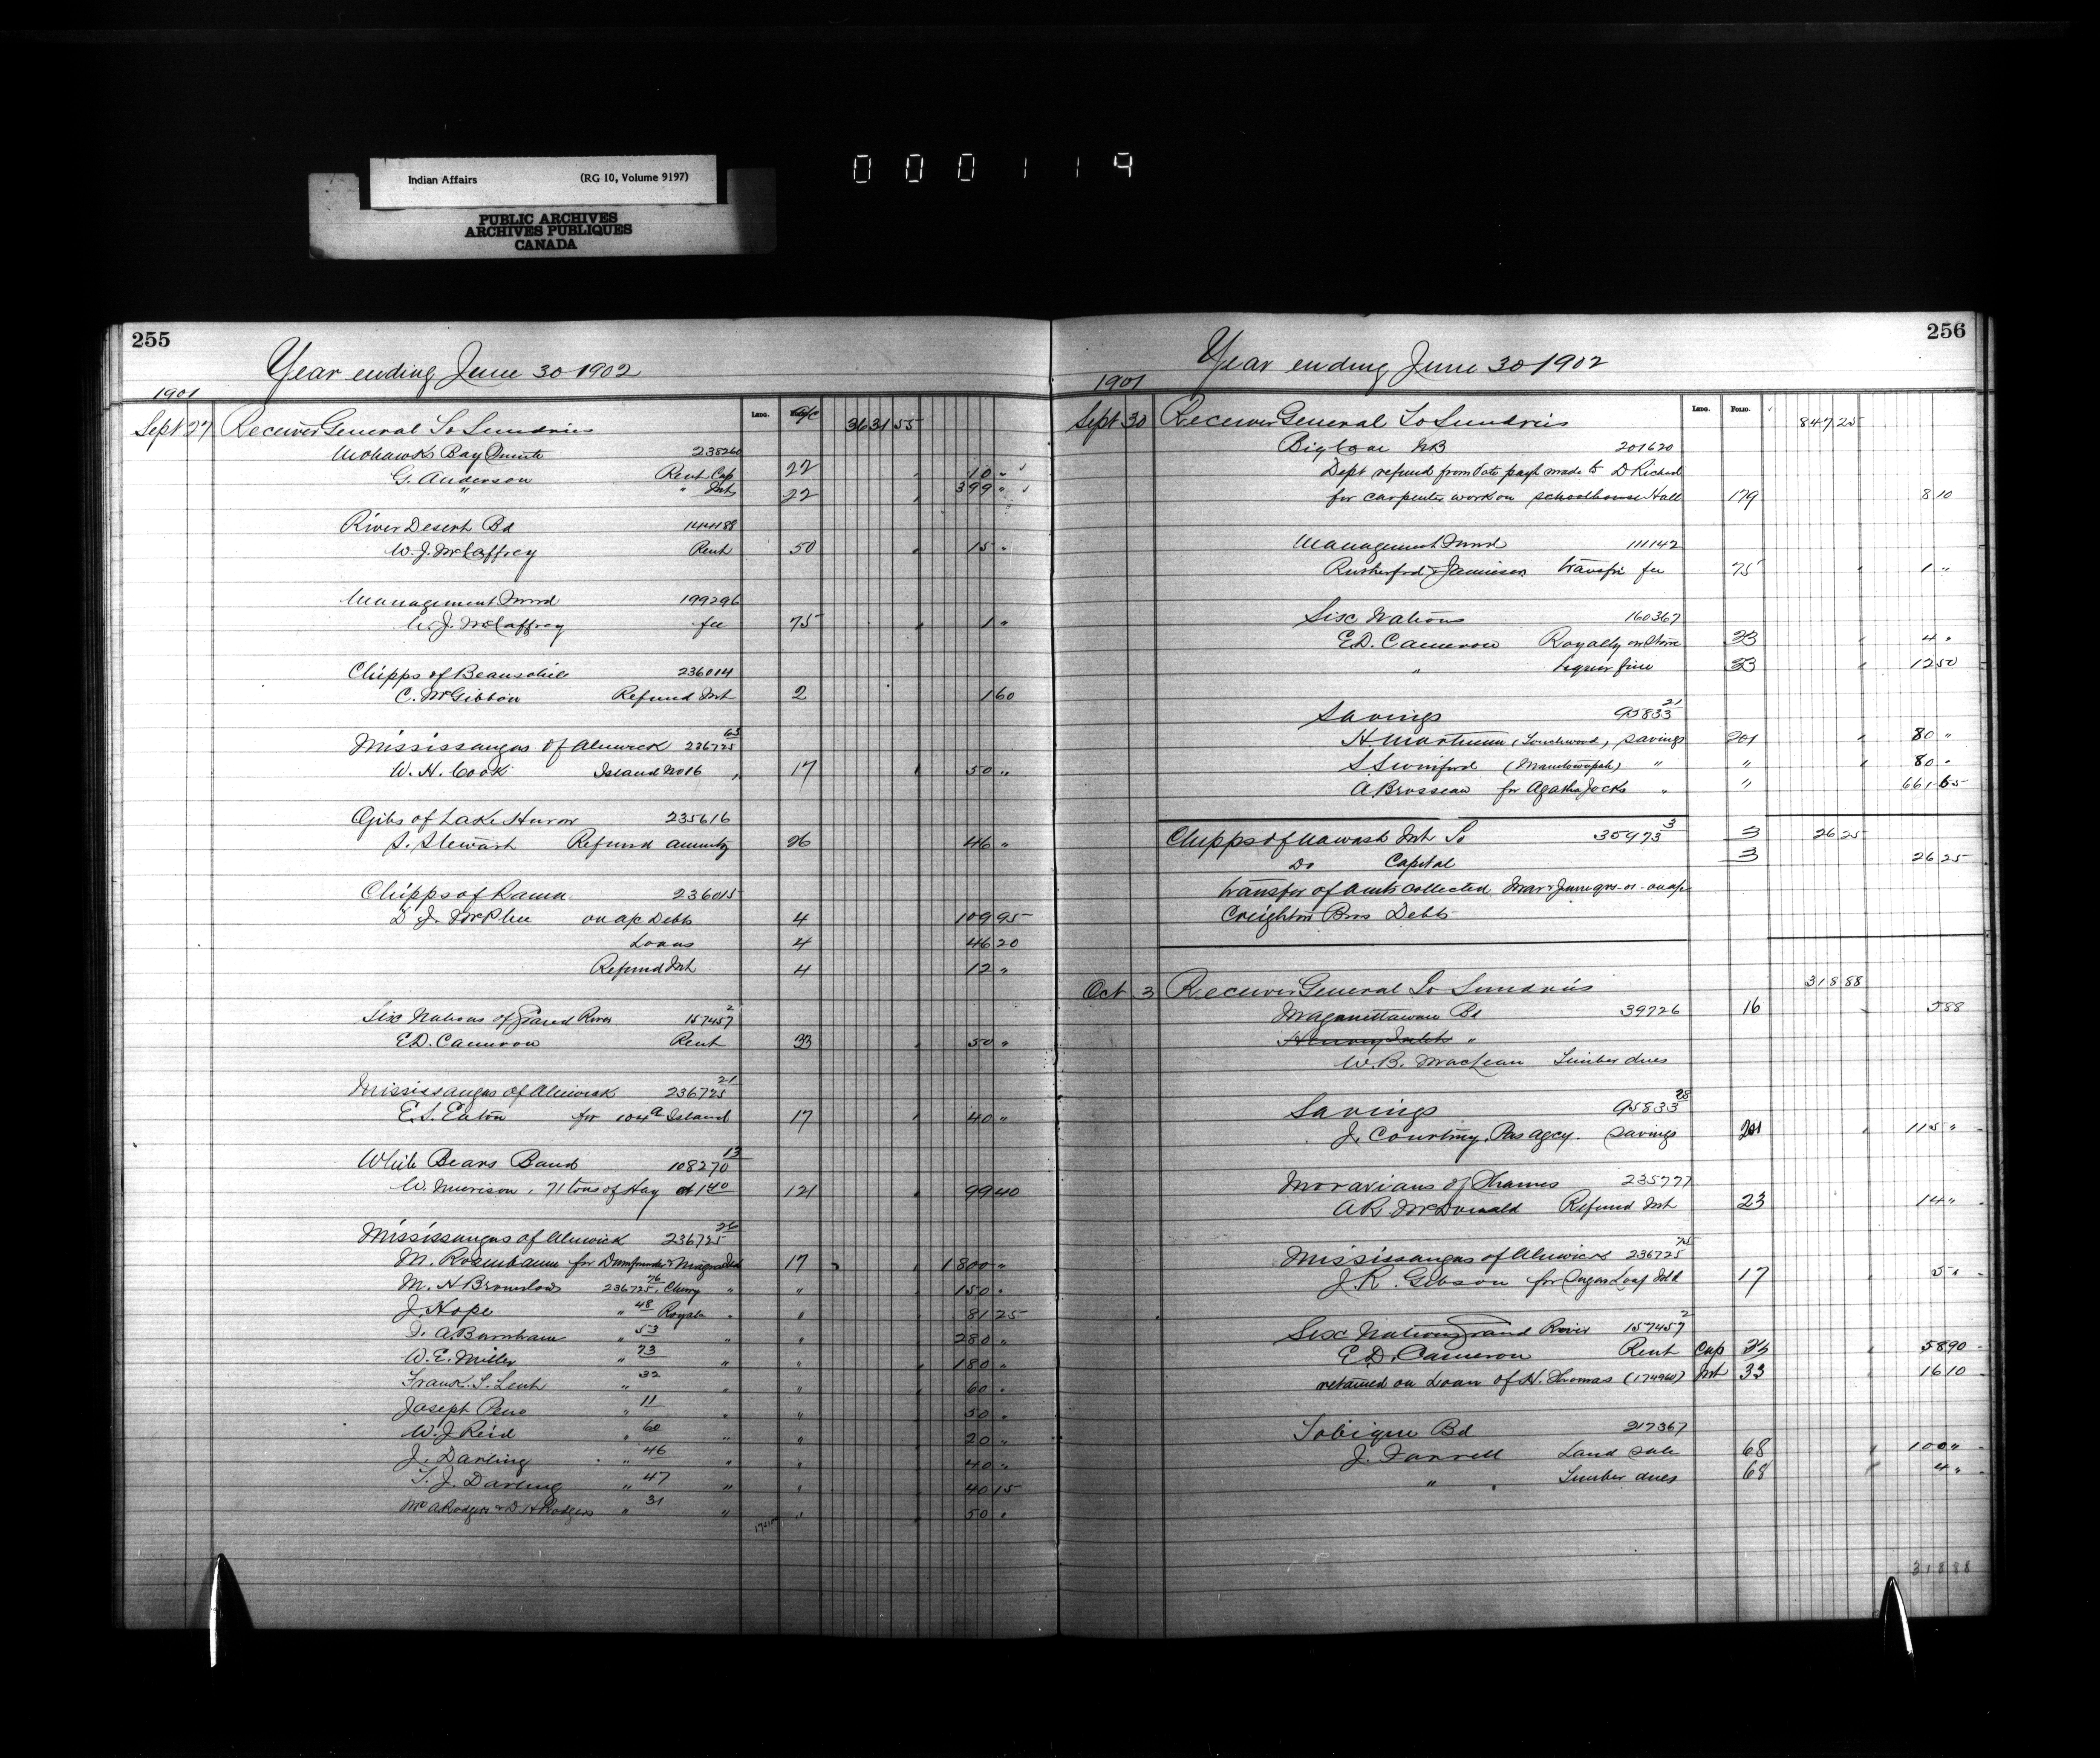 Indian Affairs (RG 10, Volume 9197)
PUBLIC ARCHIVES
ARCHIVES PUBLIQUES
CANADA
000119
255
Year ending June 30 1902
1901
Ledg. a/c
Sept 27 Receiver General To Sundries 3631 55
Mohawks Bay Quinte 238260
G. Anderson Rent Cap 22 10 "
" " Int 22 399 "
River Desert Bd 144188
W. J. McCaffrey Rent 50 15 "
Management Fund 199296
W. J. McCaffrey fee 75 1 "
Chipps of Beausoliel 236014
C. McGibbon Refund Int 2 1 60
Mississaugas of Alnwick 236725 63
W. H. Cook Island No 16 17 50 "
Ojibs of Lake Huron 235616
S. Stewart Refund annuity 26 46 "
Chipps of Rama 236015
D. J. McPhee on a/c Debts 4 109 95
Loans 4 46 20
Refund Int 4 12 "
Six Nations of Grand River 157457 2
E.D. Cameron Rent 33 50 "
Mississaugas of Alnwick 236725 21
E. S. Eaton for 104a Island 17 40 "
White Bears Band 108270 13
W. Murison, 71 tons of Hay at 1 40 121 99 40
Mississaugas of Alnwick 236725 26
M. Rosenbaum for 17 1800 "
M. H. Brownlow 236725 76 Cherry " " 150 "
J. Hope " 48 Royal " " 81 25
A. Burnham " 53 " " 280 "
W. E. Miller " 73 " " 180 "
Frank. S. Lent " 32 " " 60 "
Joseph Peno " 11 " " 50 "
W. J Reid " 60 " " 20 "
J. Darling " 46 " " 40 "
T. J. Darling " 47 " " 40 15
A. Rodgers & D. H Rodgers " 31 " " 50 "
256
Year ending June 30 1902
1901
Ledg. Folio.
Sept 30 Receiver General To Sundries 847 25
Big Cove NB 201620
Dept refund from payt made to D Richard
for carpenter work on schoolhouse Hall 179 8 10
Management Fund 111142
Rutherford & Jamieson transfr fee 75 1 "
Six Nations 160367
E.D. Cameron Royalty on Stone 33 4 "
" liquor fine 33 12 50
Savings 95833 21
H Martineau (Touchwood) savings 201 80 "
S. Swinford (Manitowapah) " " 80 "
A Brosseau for Agatha Jocks " " 661 65
Chipps of Nawash Int To 35973 3 3 26 25
Do Capital 3 26 25
transfer of amts collected Mar & June on a/c
Creighton Bros Debts
Oct 3 Receiver General To Sundries 318 88
Maganettawan Bd 39726 16 5 88
Henvey Inlet "
W. B. Maclean Timber dues
Savings 95833 28
J. Courtney, Pas agcy. savings 201 115 "
Moravians of Thames 235777
A R. McDonald Refund Int 23 14 "
Mississaugas of Alnwick 236725 75
J. R. Gibson for Sugar Loaf Isld 17 5 "
Six Nations Grand River 157457 2
E. D. Cameron Rent Cap 33 58 90
retained on Loan of H. Thomas (174960) Int 33 16 10
Tobique Bd 217367
J. Farrell Land sale 68 100 "
" Timber dues 68 4 "
318 88